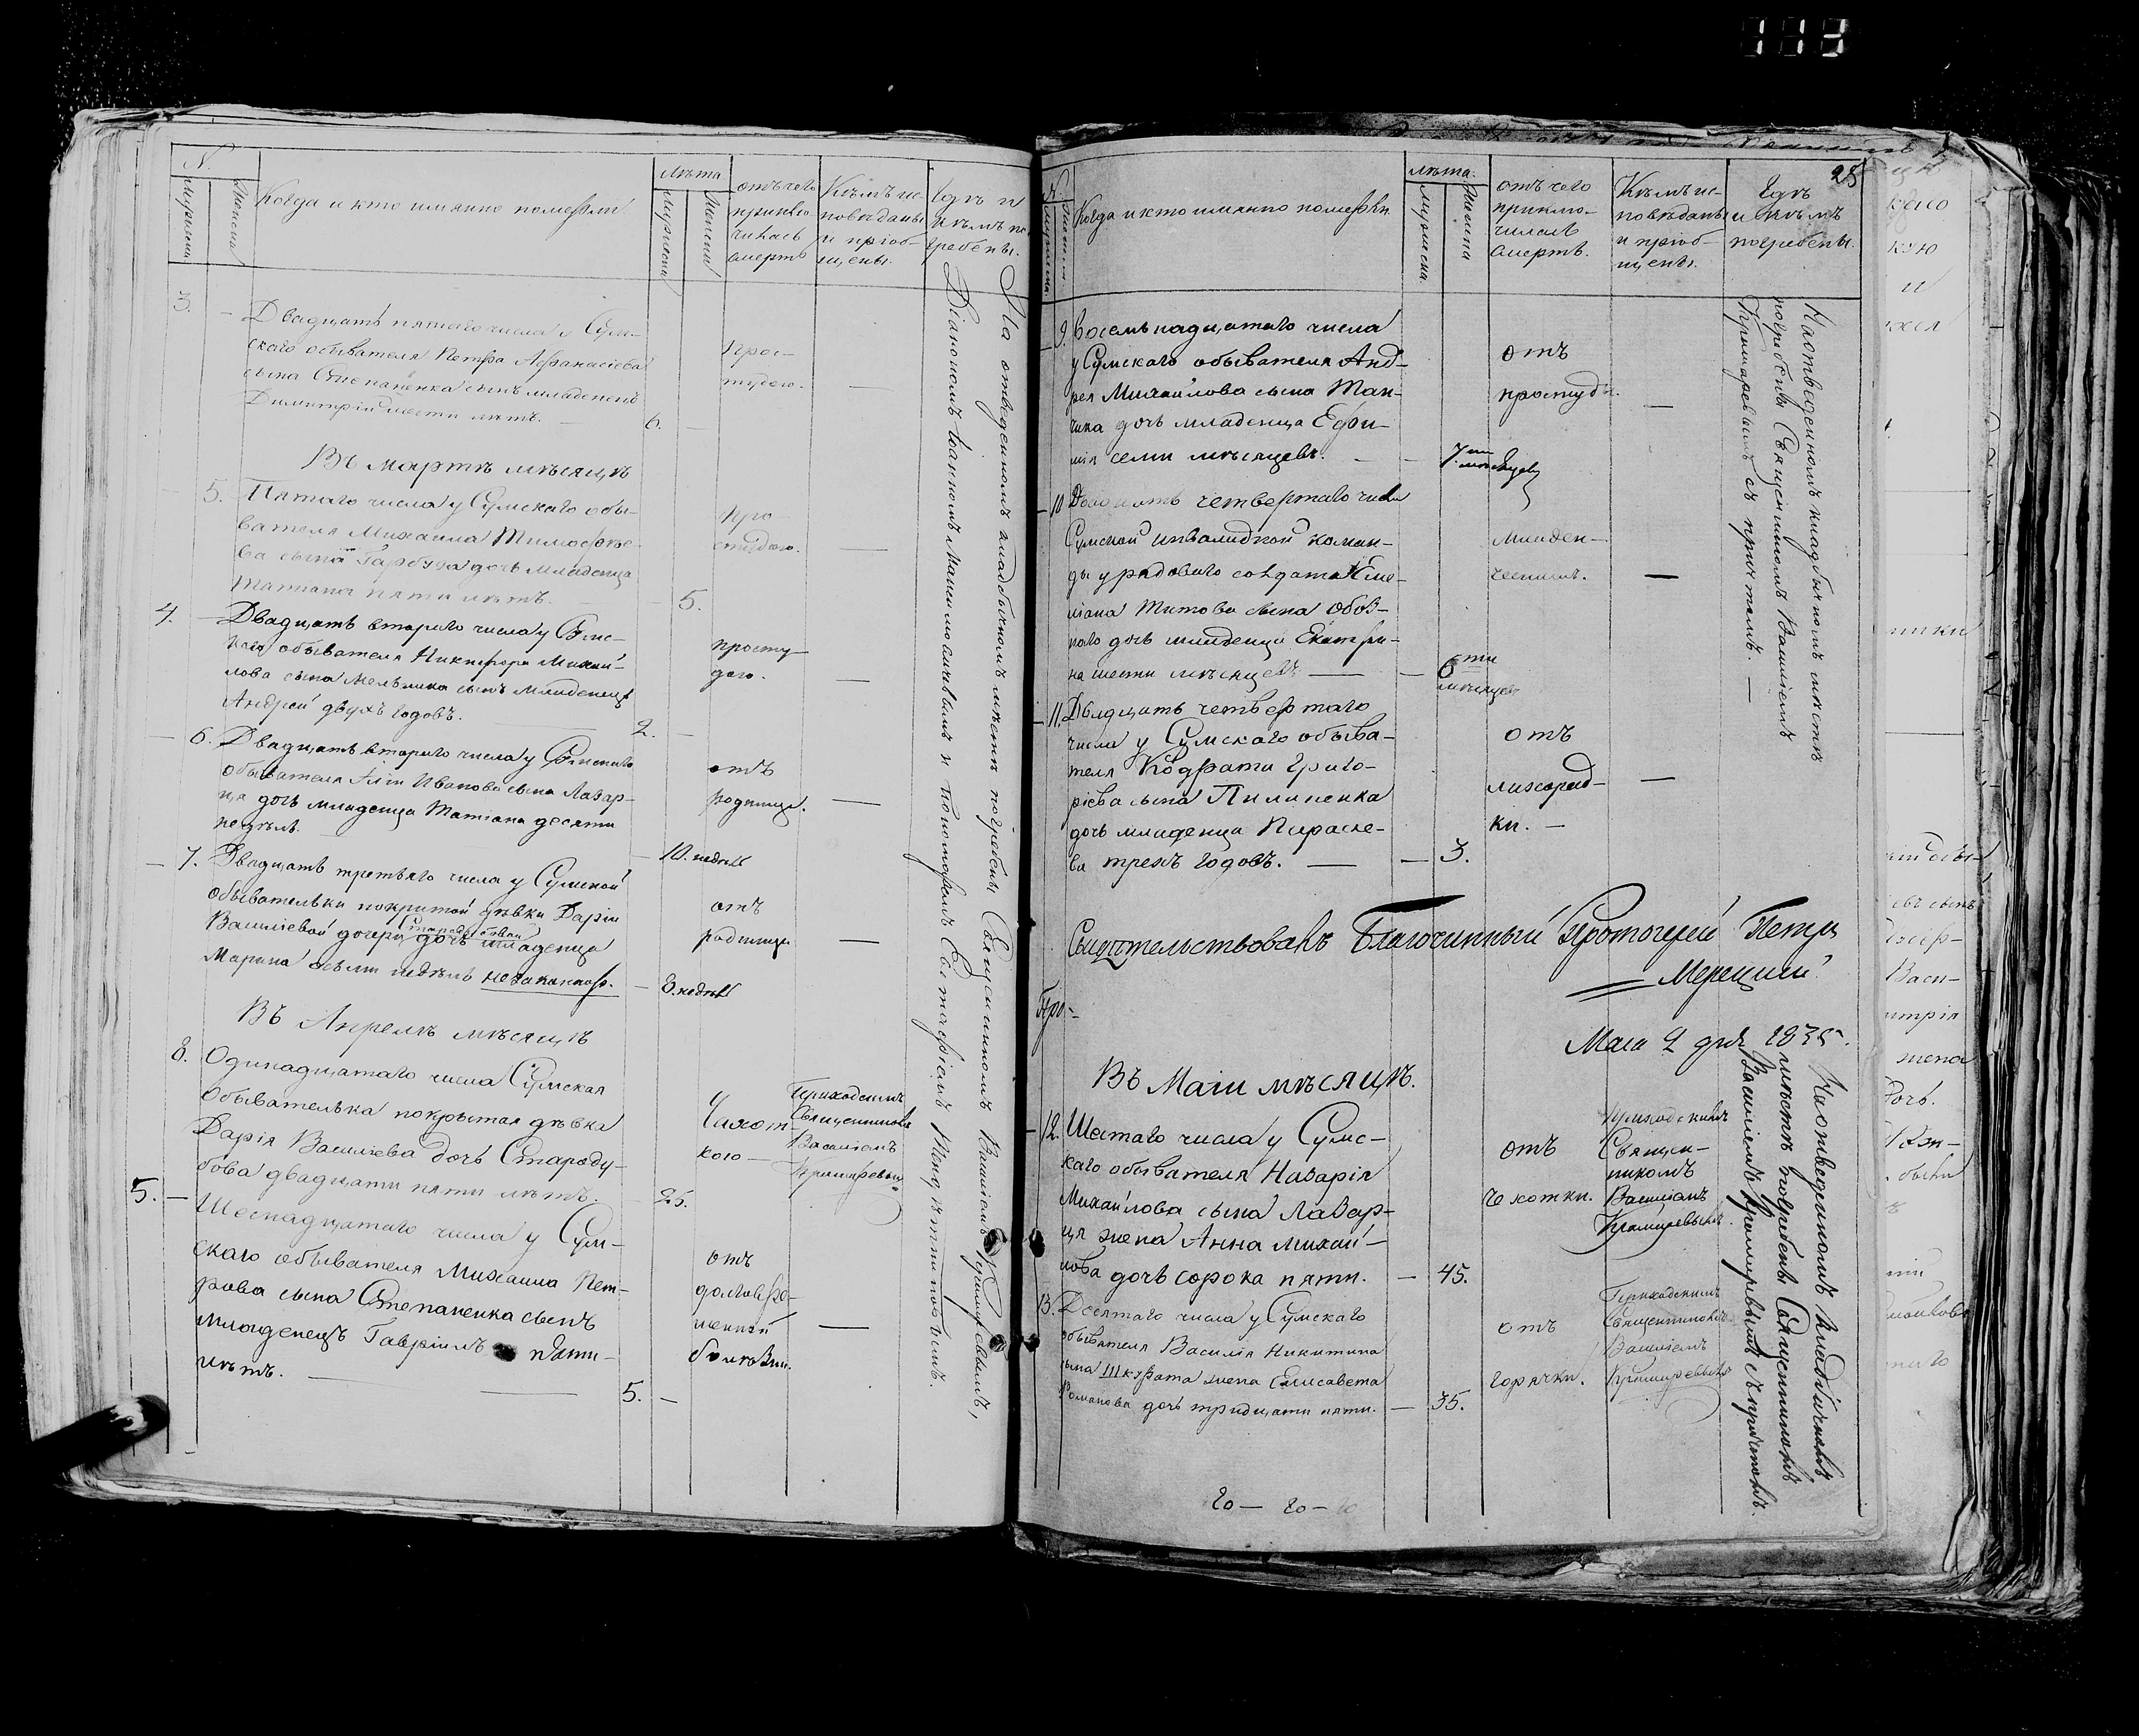 113
N
Мужеска
Женска
Когда и кто имянно померли
лѣта
Мужеска
Женска
отъ чего
приклю
чилась
смерть
Кѣмъ ис-
повѣданы
и пріоб-
щены.
Гдѣ и
кѣмъ по
гребены.
3. Двадцать пятаго числа у Сум-
скаго обывателя Петра Афанасіева
сына Степаненка сынъ младенецъ
Димитрій шести лѣтъ. — 6. —
Прос-
тудою. —
Въ Мартѣ мѣсяцѣ
5. Пятаго числа у Сумскаго обы-
вателя Михаила Тимофѣе-
ва сына Гарбуза дочь младенца
Татіана пяти лѣтъ. — 5.
Про-
студою. —
4. Двадцать втораго числа у Сумс-
каго обывателя Никифора Михай-
лова сына Мельника сынъ младенецъ
Андрей двухъ годовъ. — 2. —
просту-
дою. —
6. Двадцать втораго числа у Сумскаго
обывателя Іліи Иванова сына Лазар-
ця дочь младенца Татіана десяти
недѣль. — 10. недѣль
отъ
родимца. —
7. Двадцать третьяго числа у Сумской
обывательки покритой дѣвки Даріи
Василіевой дочери Стародубовой дочь младенца
Марина осьми недѣль незаконнор. — 8. недѣль
отъ
родимца —
Въ Апрелѣ мѣсяцѣ
8. Одинадцатаго числа Сумская
обывателька покрытая дѣвка
Дарія Василіева дочь Староду-
бова двадцати пяти лѣтъ. 25.
Чахот-
кою —
Приходскимъ
Священникомъ
Василіемъ
Крамаревымъ
5. — Шеснадцатаго числа у Сум-
скаго обывателя Михаила Пет-
рова сына Степаненка сынъ
младенецъ Гавріилъ пяти
лѣтъ. — 5. —
отъ
долговре-
менной
болѣзни. —
На отведенномъ кладбичномъ мѣстѣ погребены Священникомъ Василіемъ Крамаревымъ,
Діакономъ Іоанномъ и Пономаремъ
28
Мужеска.
Женска
Когда и кто имянно померли
лѣта.
Мужеска.
Женска
отъ чего
приклю-
чилась
смерть.
Кѣмъ ис-
повѣданы
и пріоб-
щены.
Гдѣ
и кѣмъ
погребены.
9. Восемьнадцатаго числа
у Сумскаго обывателя Анд-
рея Михайлова сына Тан-
чика дочь младенца Ефи-
мія семи мѣсяцевъ. — — 7ми мѣсяцевъ
отъ
простуды. —
10 Двадцать четвертаго числа
Сумской инвалидной коман-
ды у рядоваго солдата Еме-
ліана Титова сына Обоз-
наго дочь младенца Екатери-
на шести мѣсяцевъ — — 6ти мѣсяцевъ
Младен-
ческимъ. —
11. Двадцать четвертаго
числа у Сумскаго обыва-
теля Кодрата Григо-
ріева сына Пилипенка
дочь младенца Параске-
ва трехъ годовъ. — — 3.
отъ
лихорад-
ки. —
На отведенномъ кладбичномъ мѣстѣ
погребены Священникомъ Василіемъ
Крамаревымъ съ причтомъ. —
Свидѣтельствовалъ Благочинный Протоіерей Петръ
Мерецкій
Маія 2 дня 1835.
Въ Маіи мѣсяцѣ.
12. Шестаго числа у Сумс-
каго обывателя Назарія
Михайлова сына Лазар-
ця жена Анна Михай-
лова дочь сорока пяти. — 45.
отъ
чехотки.
Приходскимъ
Священ-
никомъ
Василіемъ
Крамаревымъ.
13. Десятаго числа у Сумскаго
обывателя Василія Никитина
сына Шкурата жена Елисавета
Романова дочь тридцати пяти. — 35.
отъ
горячки.
Приходскимъ
Священникомъ
Василіемъ
Крамаревымъ
На отведенномъ кладбичномъ
мѣстѣ погребены Священникомъ
Василіемъ Крамаревымъ съ причтомъ.